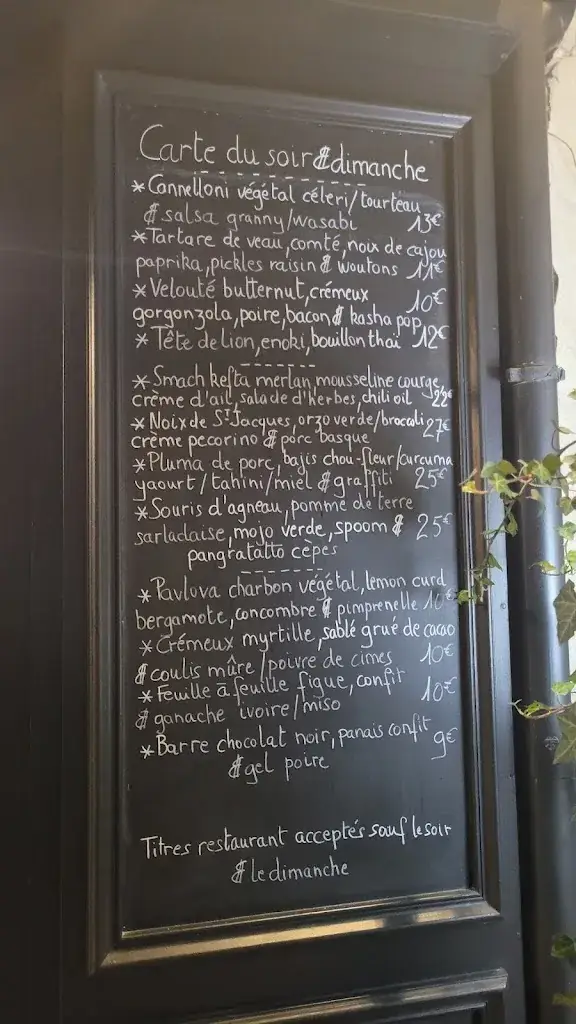 Carte du soir & dimanche
* Cannelloni végétal céleri/tourteau
& salsa granny/wasabi 13€
* Tartare de veau, comté, noix de cajou
paprika, pickles raisin & woutons 11€
* Velouté butternut, crémeux
gorgonzola, poire, bacon & kasha pop 10€
* Tête de lion, enoki, bouillon thaï 12€
* Smach kefta merlan mousseline courge,
crème d'ail, salade d'herbes, chili oil 22€
* Noix de St Jacques, orzo verde/brocoli
crème pecorino & porc basque 27€
* Pluma de porc, bajis chou-fleur/curcuma
yaourt/tahini/miel & graffiti 25€
* Souris d'agneau, pomme de terre
sarladaise, mojo verde, spoom & 25€
pangratatto cèpes
* Pavlova charbon végétal, lemon curd
bergamote, concombre & pimprenelle 10€
* Crémeux myrtille, sablé grué de cacao
& coulis mûre/poivre de cimes 10€
* Feuille à feuille figue, confit
& ganache ivoire/miso 10€
* Barre chocolat noir, panais confit 9€
& gel poire
Titres restaurant acceptés sauf le soir
& le dimanche